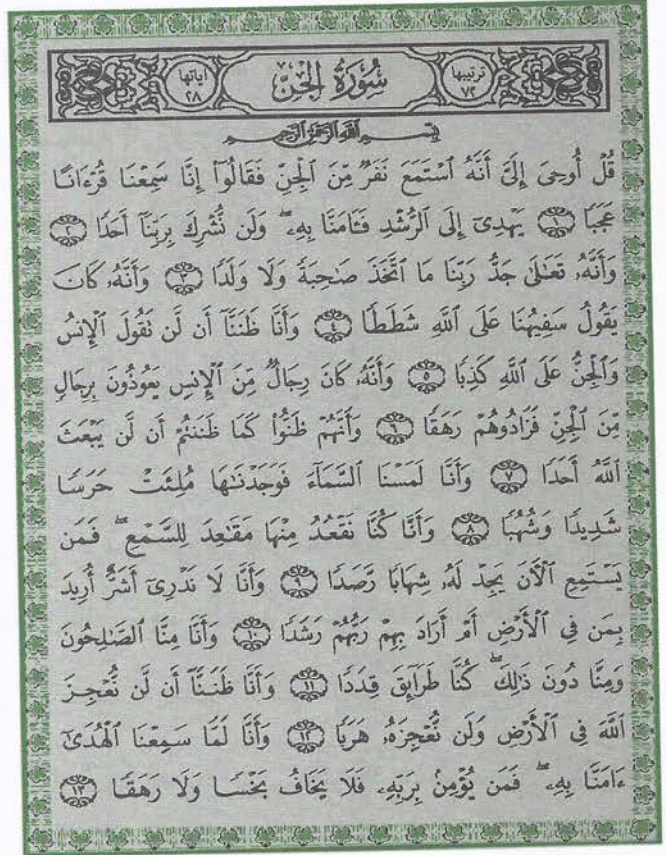 ترتيبها ٧٢ سُورَةُ الْجِنِّ اياتها ٢٨
بِسْمِ اللَّهِ الرَّحْمَٰنِ الرَّحِيمِ
قُلْ أُوحِىَ إِلَىَّ أَنَّهُ ٱسْتَمَعَ نَفَرٌ مِّنَ ٱلْجِنِّ فَقَالُوٓا۟ إِنَّا سَمِعْنَا قُرْءَانًا
عَجَبًا ١ يَهْدِىٓ إِلَى ٱلرُّشْدِ فَـَٔامَنَّا بِهِۦ ۖ وَلَن نُّشْرِكَ بِرَبِّنَآ أَحَدًا ٢
وَأَنَّهُۥ تَعَٰلَىٰ جَدُّ رَبِّنَا مَا ٱتَّخَذَ صَٰحِبَةً وَلَا وَلَدًا ٣ وَأَنَّهُۥ كَانَ
يَقُولُ سَفِيهُنَا عَلَى ٱللَّهِ شَطَطًا ٤ وَأَنَّا ظَنَنَّآ أَن لَّن نَقُولَ ٱلْإِنسُ
وَٱلْجِنُّ عَلَى ٱللَّهِ كَذِبًا ٥ وَأَنَّهُۥ كَانَ رِجَالٌ مِّنَ ٱلْإِنسِ يَعُوذُونَ بِرِجَالٍ
مِّنَ ٱلْجِنِّ فَزَادُوهُمْ رَهَقًا ٦ وَأَنَّهُمْ ظَنُّوا۟ كَمَا ظَنَنتُمْ أَن لَّن يَبْعَثَ
ٱللَّهُ أَحَدًا ٧ وَأَنَّا لَمَسْنَا ٱلسَّمَآءَ فَوَجَدْنَٰهَا مُلِئَتْ حَرَسًا
شَدِيدًا وَشُهُبًا ٨ وَأَنَّا كُنَّا نَقْعُدُ مِنْهَا مَقَٰعِدَ لِلسَّمْعِ ۖ فَمَن
يَسْتَمِعِ ٱلْآنَ يَجِدْ لَهُۥ شِهَابًا رَّصَدًا ٩ وَأَنَّا لَا نَدْرِىٓ أَشَرٌّ أُرِيدَ
بِمَن فِى ٱلْأَرْضِ أَمْ أَرَادَ بِهِمْ رَبُّهُمْ رَشَدًا ١٠ وَأَنَّا مِنَّا ٱلصَّٰلِحُونَ
وَمِنَّا دُونَ ذَٰلِكَ ۖ كُنَّا طَرَآئِقَ قِدَدًا ١١ وَأَنَّا ظَنَنَّآ أَن لَّن نُّعْجِزَ
ٱللَّهَ فِى ٱلْأَرْضِ وَلَن نُّعْجِزَهُۥ هَرَبًا ١٢ وَأَنَّا لَمَّا سَمِعْنَا ٱلْهُدَىٰٓ
ءَامَنَّا بِهِۦ ۖ فَمَن يُؤْمِنۢ بِرَبِّهِۦ فَلَا يَخَافُ بَخْسًا وَلَا رَهَقًا ١٣